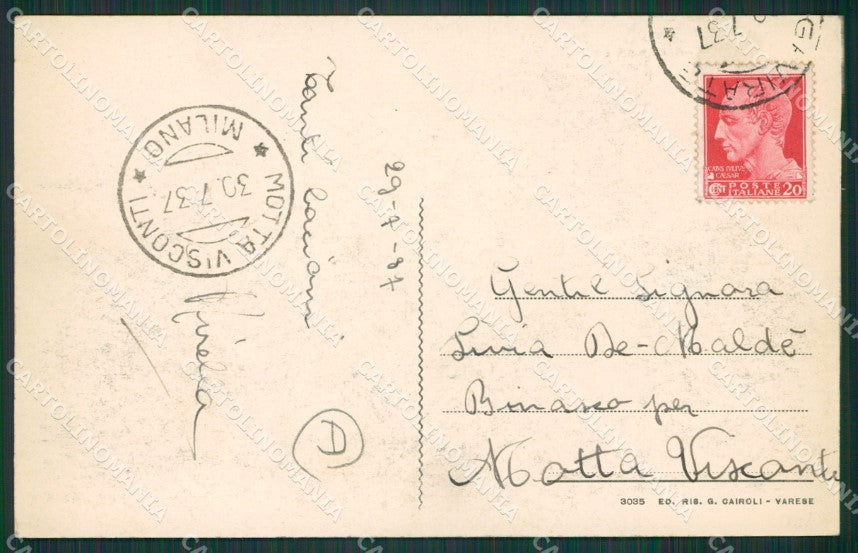 Tanti bacioni
29-7-37
MOTTA VISCONTI
MILANO
30.7.37
7.37
CAIVS IVLIVS
CAESAR
CENT POSTE
ITALIANE 20
Gentil Signora
Livia De-Maldè
Binasco per
Motta Visconti
A
3035 ED. RIS. G. CAIROLI - VARESE
CARTOLINOMANIA